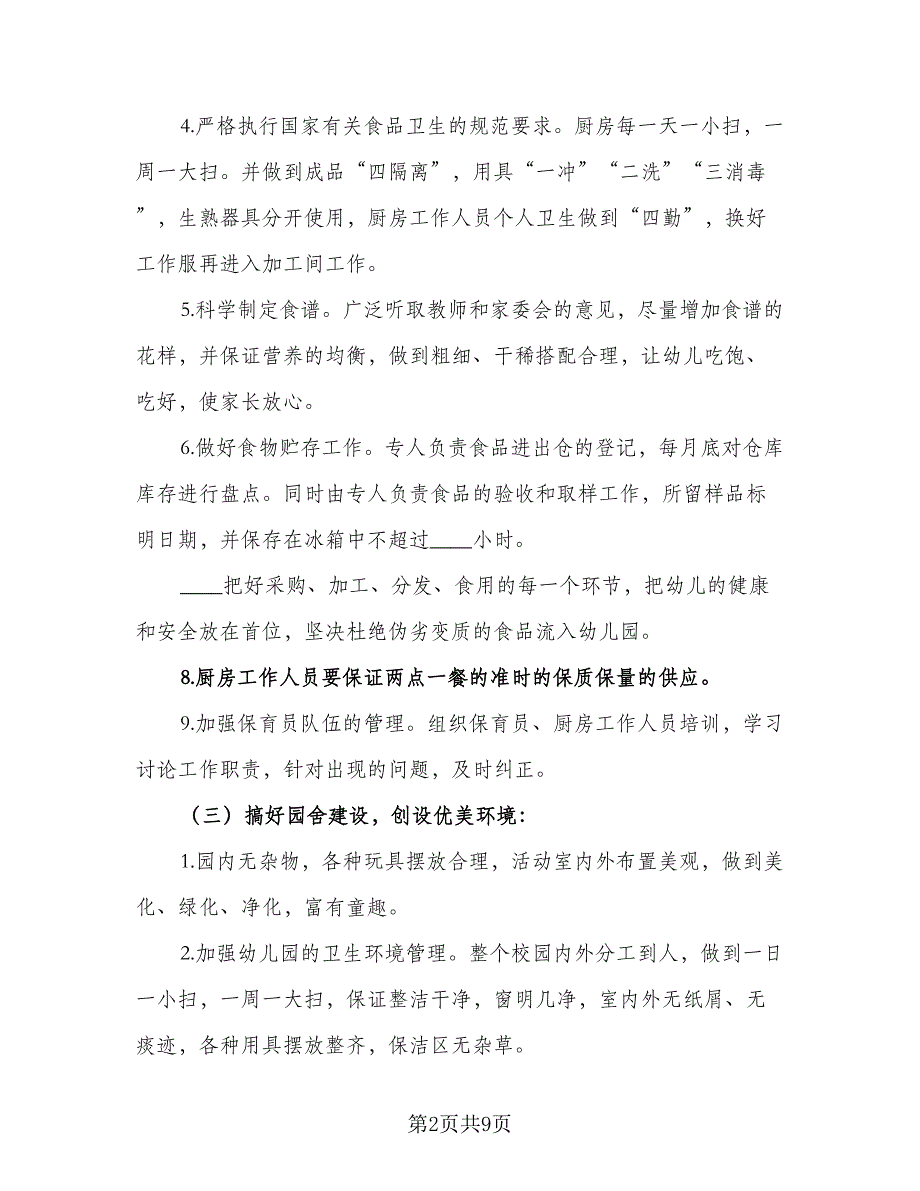 4.严格执行国家有关食品卫生的规范要求。厨房每一天一小扫，一
周一大扫。并做到成品“四隔离”，用具“一冲”“二洗”“三消毒
”，生熟器具分开使用，厨房工作人员个人卫生做到“四勤”，换好
工作服再进入加工间工作。
5.科学制定食谱。广泛听取教师和家委会的意见，尽量增加食谱的
花样，并保证营养的均衡，做到粗细、干稀搭配合理，让幼儿吃饱、
吃好，使家长放心。
6.做好食物贮存工作。专人负责食品进出仓的登记，每月底对仓库
库存进行盘点。同时由专人负责食品的验收和取样工作，所留样品标
明日期，并保存在冰箱中不超过____小时。
____把好采购、加工、分发、食用的每一个环节，把幼儿的健康
和安全放在首位，坚决杜绝伪劣变质的食品流入幼儿园。
8.厨房工作人员要保证两点一餐的准时的保质保量的供应。
9.加强保育员队伍的管理。组织保育员、厨房工作人员培训，学习
讨论工作职责，针对出现的问题，及时纠正。
（三）搞好园舍建设，创设优美环境：
1.园内无杂物，各种玩具摆放合理，活动室内外布置美观，做到美
化、绿化、净化，富有童趣。
2.加强幼儿园的卫生环境管理。整个校园内外分工到人，做到一日
一小扫，一周一大扫，保证整洁干净，窗明几净，室内外无纸屑、无
痰迹，各种用具摆放整齐，保洁区无杂草。
第2页共9页